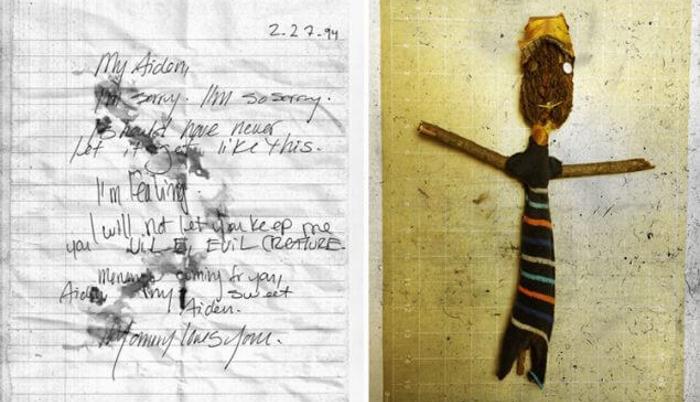 2.27.94
My Aiden,
I'm sorry. I'm so sorry.
I should have never
let it get like this.
I'm leaving.
I will not let you keep me
you VILE, EVIL CREATURE
coming for you,
Aiden my sweet
Aiden.
Mommy loves you.